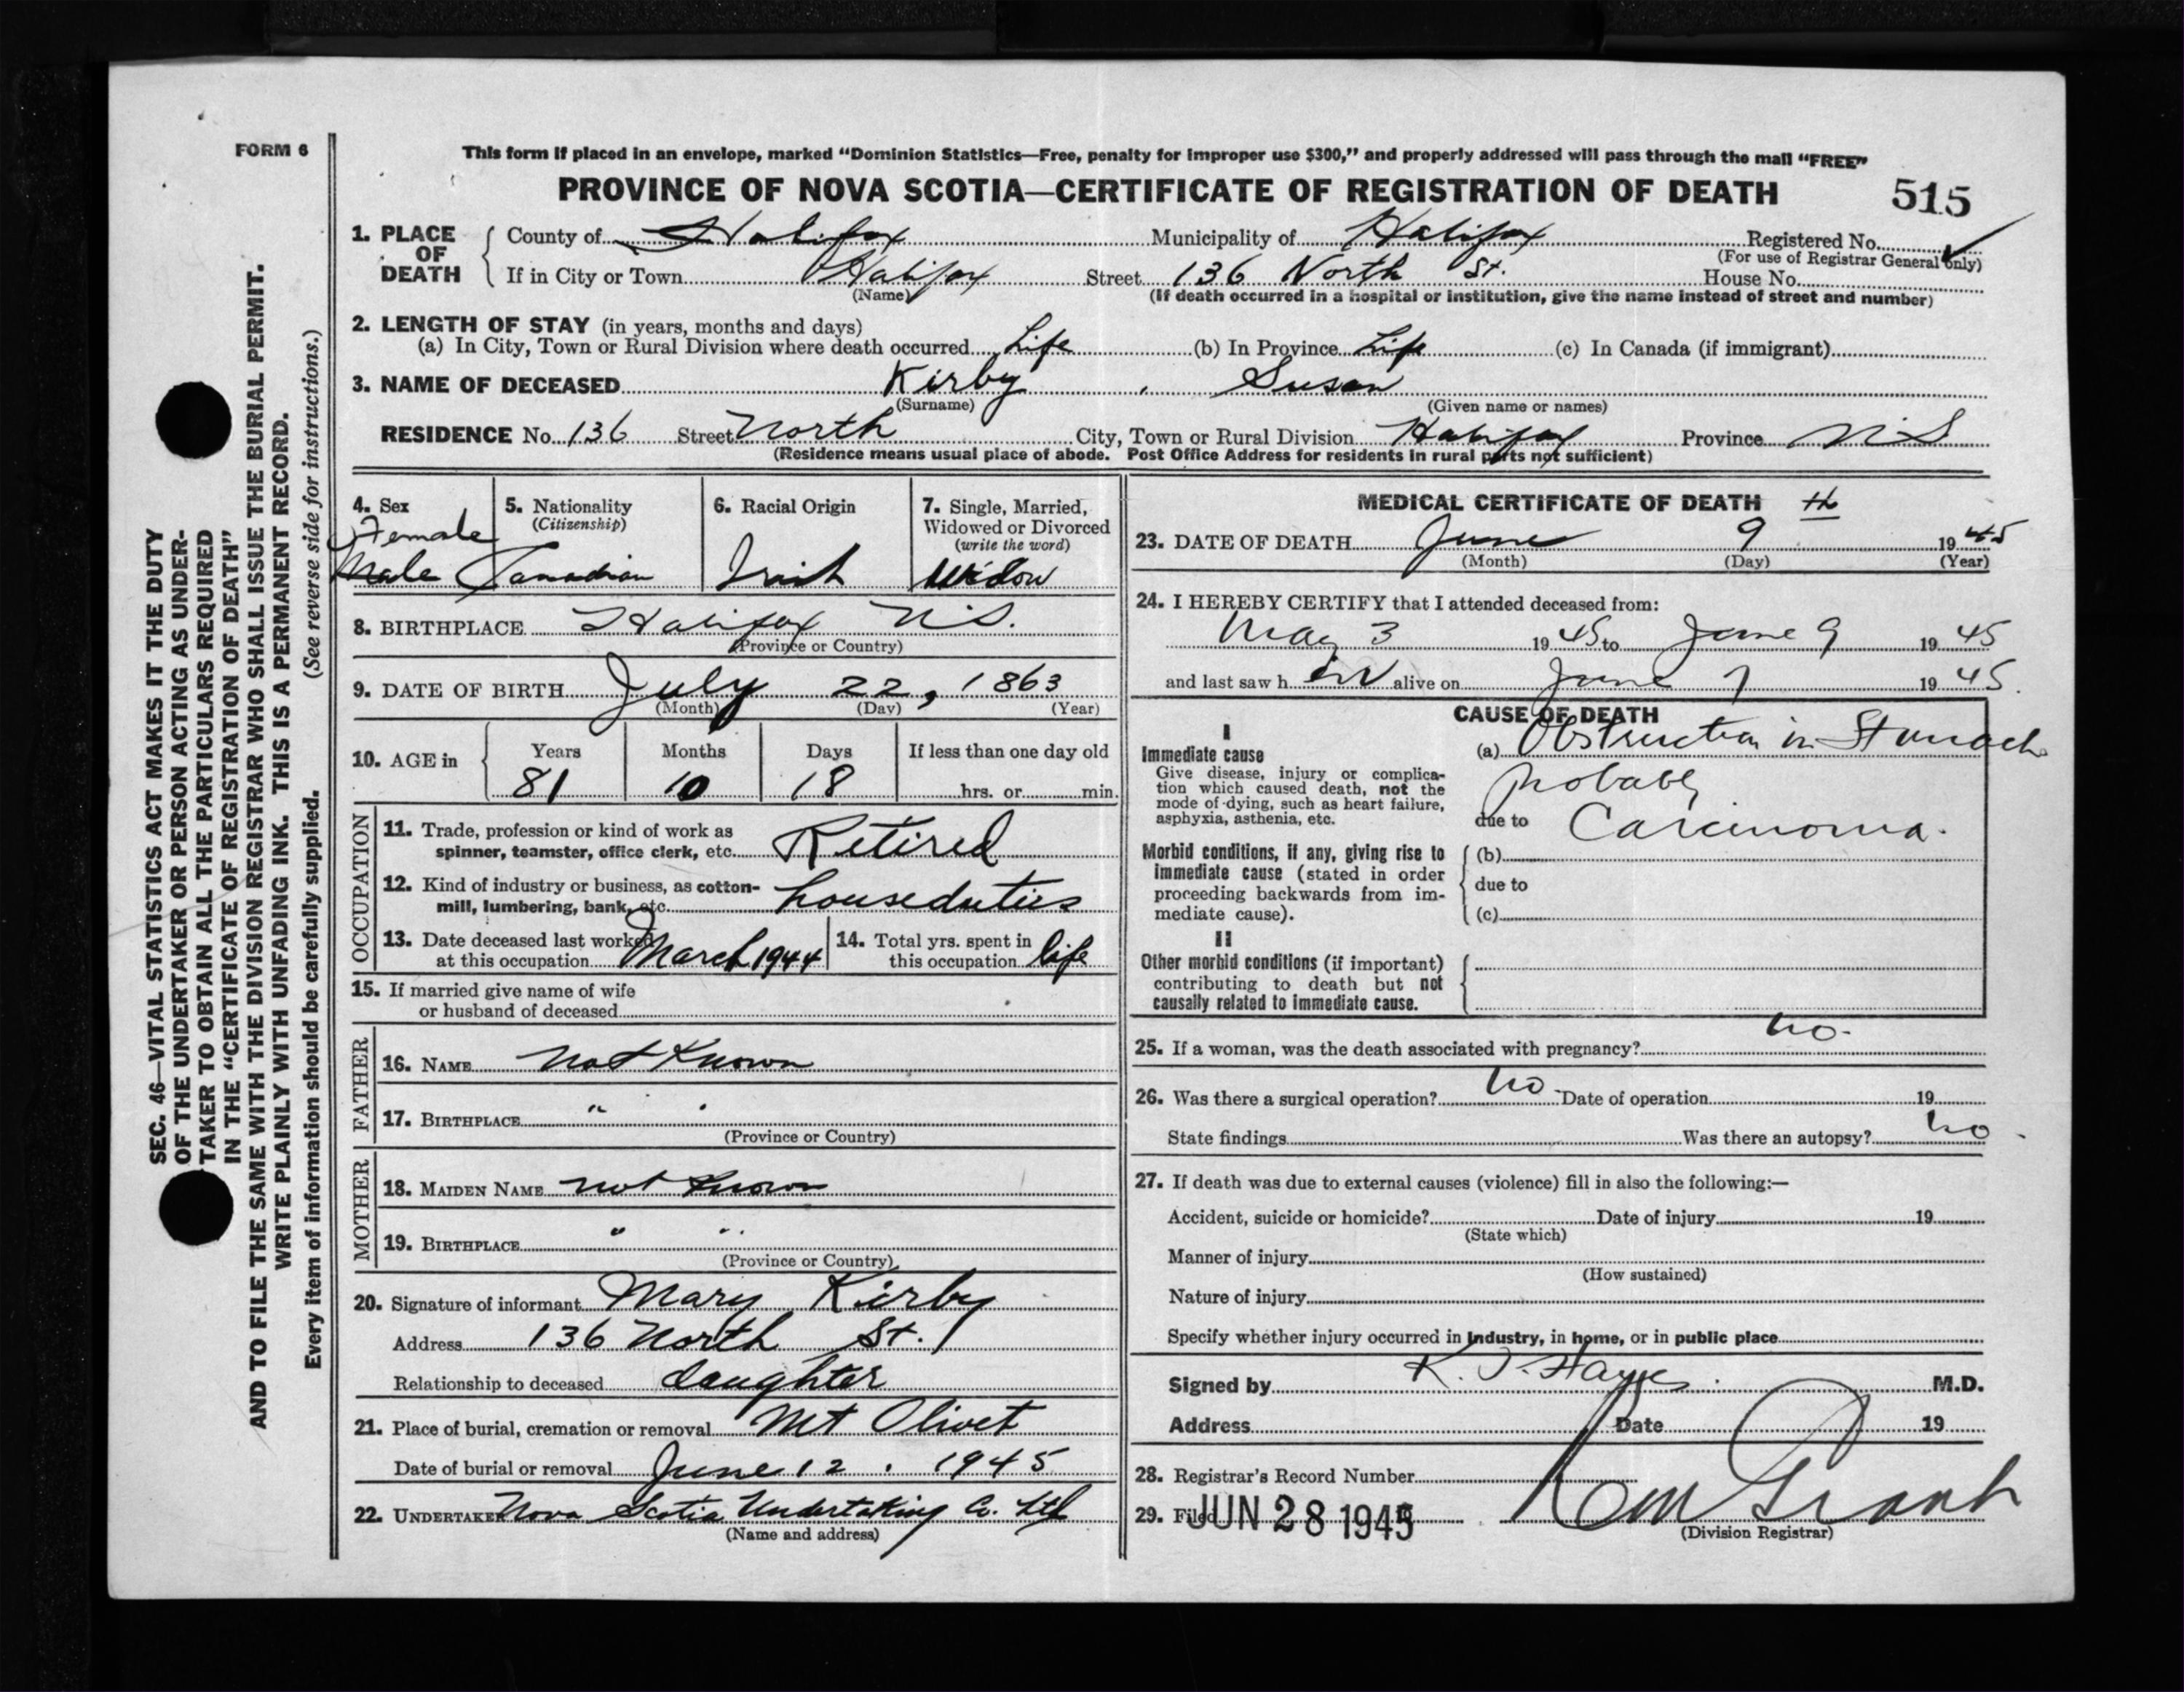 FORM 6
This form if placed in an envelope, marked “Dominion Statistics—Free, penalty for improper use $300,” and properly addressed will pass through the mail “FREE”
PROVINCE OF NOVA SCOTIA—CERTIFICATE OF REGISTRATION OF DEATH 515
1. PLACE OF DEATH County of Halifax Municipality of Halifax Registered No.
(For use of Registrar General only)
If in City or Town Halifax Street 136 North St. House No.
(Name) (If death occurred in a hospital or institution, give the name instead of street and number)
2. LENGTH OF STAY (in years, months and days)
(a) In City, Town or Rural Division where death occurred Life (b) In Province Life (c) In Canada (if immigrant)
3. NAME OF DECEASED Kirby, Susan
(Surname) (Given name or names)
RESIDENCE No. 136 Street North City, Town or Rural Division Halifax Province N S
(Residence means usual place of abode. Post Office Address for residents in rural parts not sufficient)
4. Sex
Female
Male
5. Nationality
(Citizenship)
Canadian
6. Racial Origin
Irish
7. Single, Married,
Widowed or Divorced
(write the word)
Widow
8. BIRTHPLACE Halifax N.S.
(Province or Country)
9. DATE OF BIRTH July 22, 1863
(Month) (Day) (Year)
10. AGE in Years Months Days If less than one day old
81 10 18 hrs. or min.
OCCUPATION
11. Trade, profession or kind of work as
spinner, teamster, office clerk, etc. Retired
12. Kind of industry or business, as cotton-
mill, lumbering, bank, etc. houseduties
13. Date deceased last worked
at this occupation March 1944
14. Total yrs. spent in
this occupation life
15. If married give name of wife
or husband of deceased
FATHER
16. NAME not known
17. BIRTHPLACE " "
(Province or Country)
MOTHER
18. MAIDEN NAME not known
19. BIRTHPLACE " "
(Province or Country)
20. Signature of informant Mary Kirby
Address 136 North St.
Relationship to deceased daughter
21. Place of burial, cremation or removal Mt Olivet
Date of burial or removal June 12. 1945
22. UNDERTAKER Nova Scotia Undertaking Co. Ltd
(Name and address)
MEDICAL CERTIFICATE OF DEATH
23. DATE OF DEATH June 9th 1945
(Month) (Day) (Year)
24. I HEREBY CERTIFY that I attended deceased from:
May 3 1945 to June 9 1945
and last saw h er alive on June 7 1945.
CAUSE OF DEATH
I
Immediate cause
Give disease, injury or complica-
tion which caused death, not the
mode of dying, such as heart failure,
asphyxia, asthenia, etc.
(a) Obstruction in Stomach
probably
due to Carcinoma.
Morbid conditions, if any, giving rise to
immediate cause (stated in order
proceeding backwards from im-
mediate cause).
(b)
due to
(c)
II
Other morbid conditions (if important)
contributing to death but not
causally related to immediate cause.
25. If a woman, was the death associated with pregnancy? no.
26. Was there a surgical operation? no. Date of operation 19
State findings Was there an autopsy? no.
27. If death was due to external causes (violence) fill in also the following:—
Accident, suicide or homicide? Date of injury 19
(State which)
Manner of injury
(How sustained)
Nature of injury
Specify whether injury occurred in industry, in home, or in public place
Signed by Hayes M.D.
Address Date 19
28. Registrar's Record Number
29. Filed JUN 28 1945
(Division Registrar)
SEC. 46—VITAL STATISTICS ACT MAKES IT THE DUTY
OF THE UNDERTAKER OR PERSON ACTING AS UNDER-
TAKER TO OBTAIN ALL THE PARTICULARS REQUIRED
IN THE “CERTIFICATE OF REGISTRATION OF DEATH”
AND TO FILE THE SAME WITH THE DIVISION REGISTRAR WHO SHALL ISSUE THE BURIAL PERMIT.
WRITE PLAINLY WITH UNFADING INK. THIS IS A PERMANENT RECORD.
Every item of information should be carefully supplied. (See reverse side for instructions.)